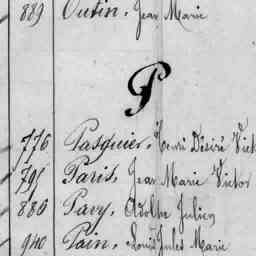 889 Outin, Jean Marie
P
776 Pasquier, Henri Désiré Vict
795 Paris, Jean Marie Victor
880 Pavy, Adolphe Julien
940 Pain, Louis Jules Marie